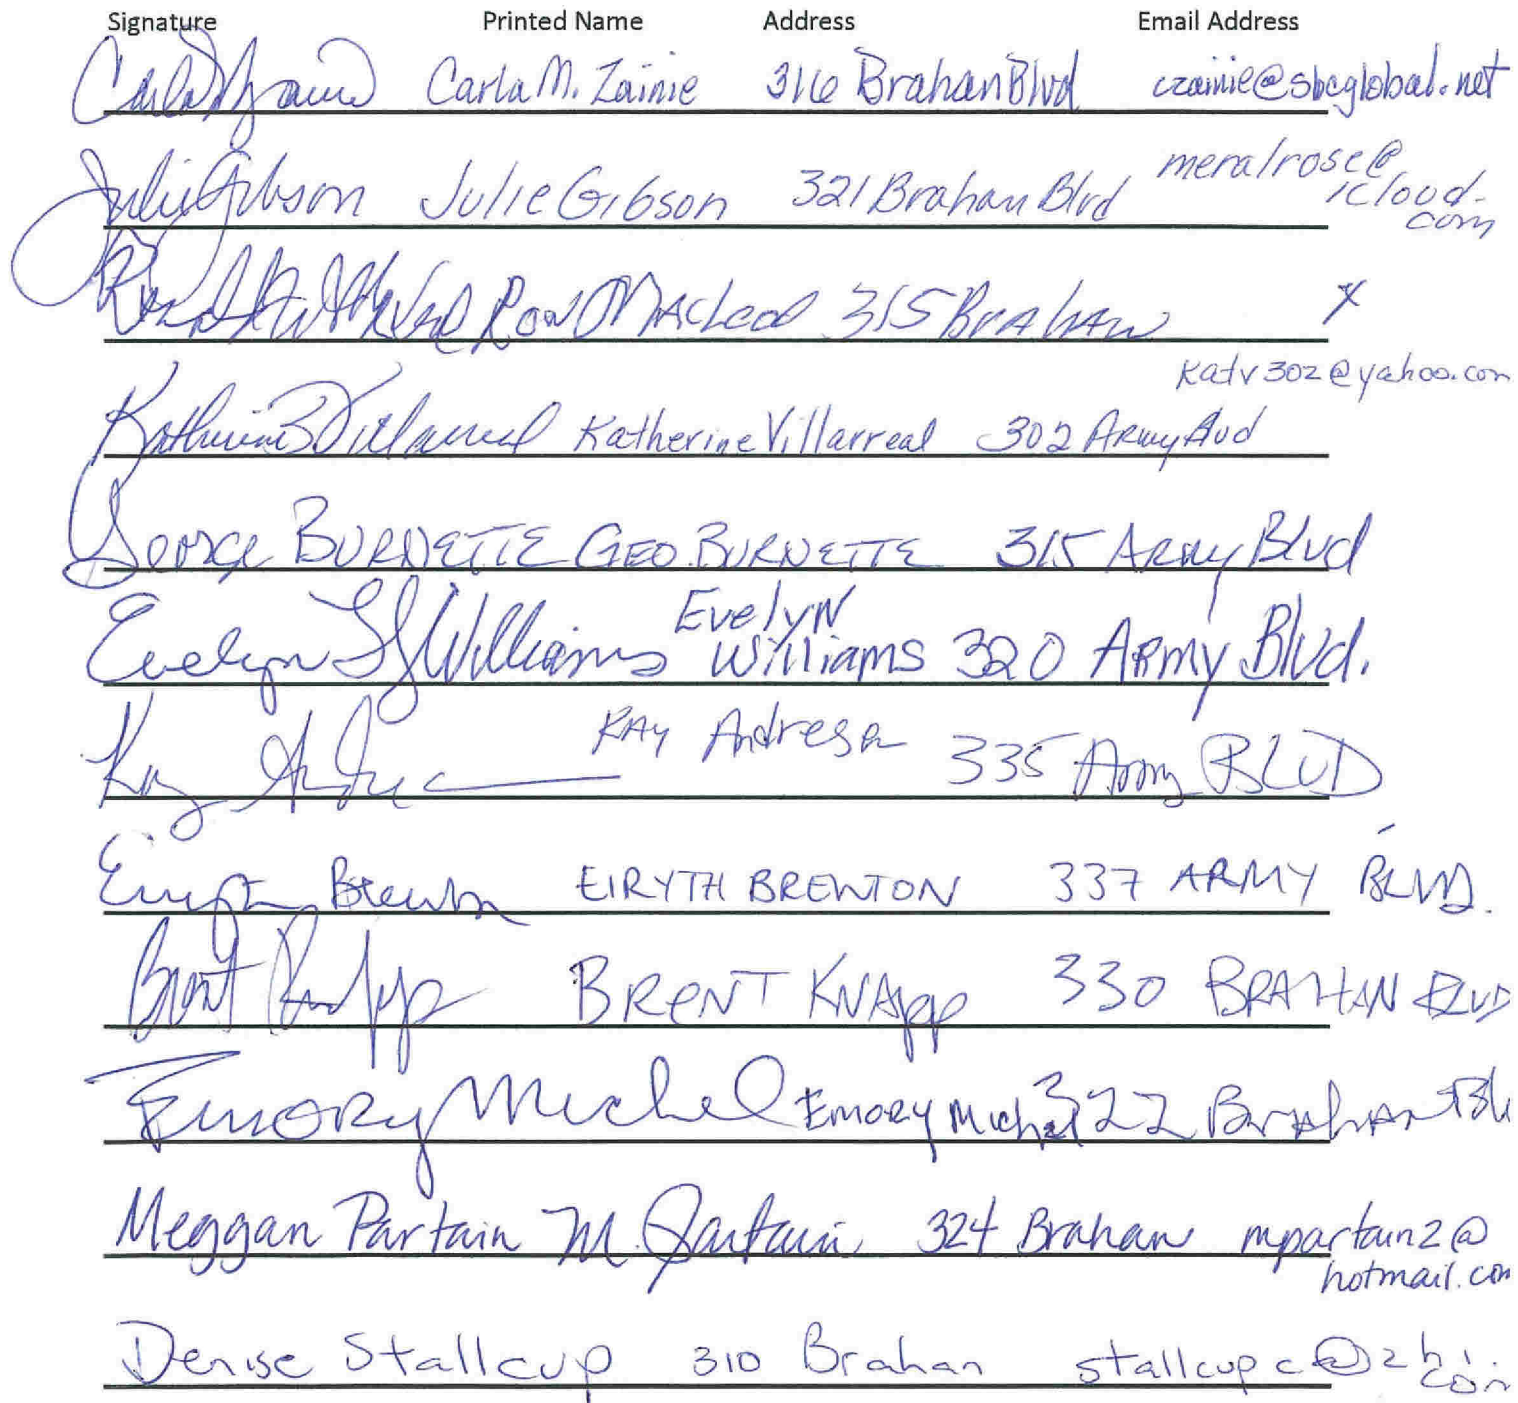 Signature Printed Name Address Email Address
Carla M. Zainie 316 Brahan Blvd czainie@sbcglobal.net
Julie Gibson Julie Gibson 321 Brahan Blvd meralrose@
icloud.
com
Ron MacLeod 315 Brahan X
katv302@yahoo.com
Katherine B Villarreal Katherine Villarreal 302 Army
George BURNETTE GEO. BURNETTE 315 Army Blvd
Evelyn
Evelyn Williams Williams 320 Army Blvd.
Kay Andresen
Kay 335 Army BLVD
Brewton EIRYTH BREWTON 337 ARMY BLVD.
Brent Knapp BRENT KNAPP 330 BRAHAN BLVD
Emory Michel Emory Michel 322 Brahan Bl
Meggan Partain M. Partain 324 Brahan mpartain2@
hotmail.com
Denise Stallcup 310 Brahan